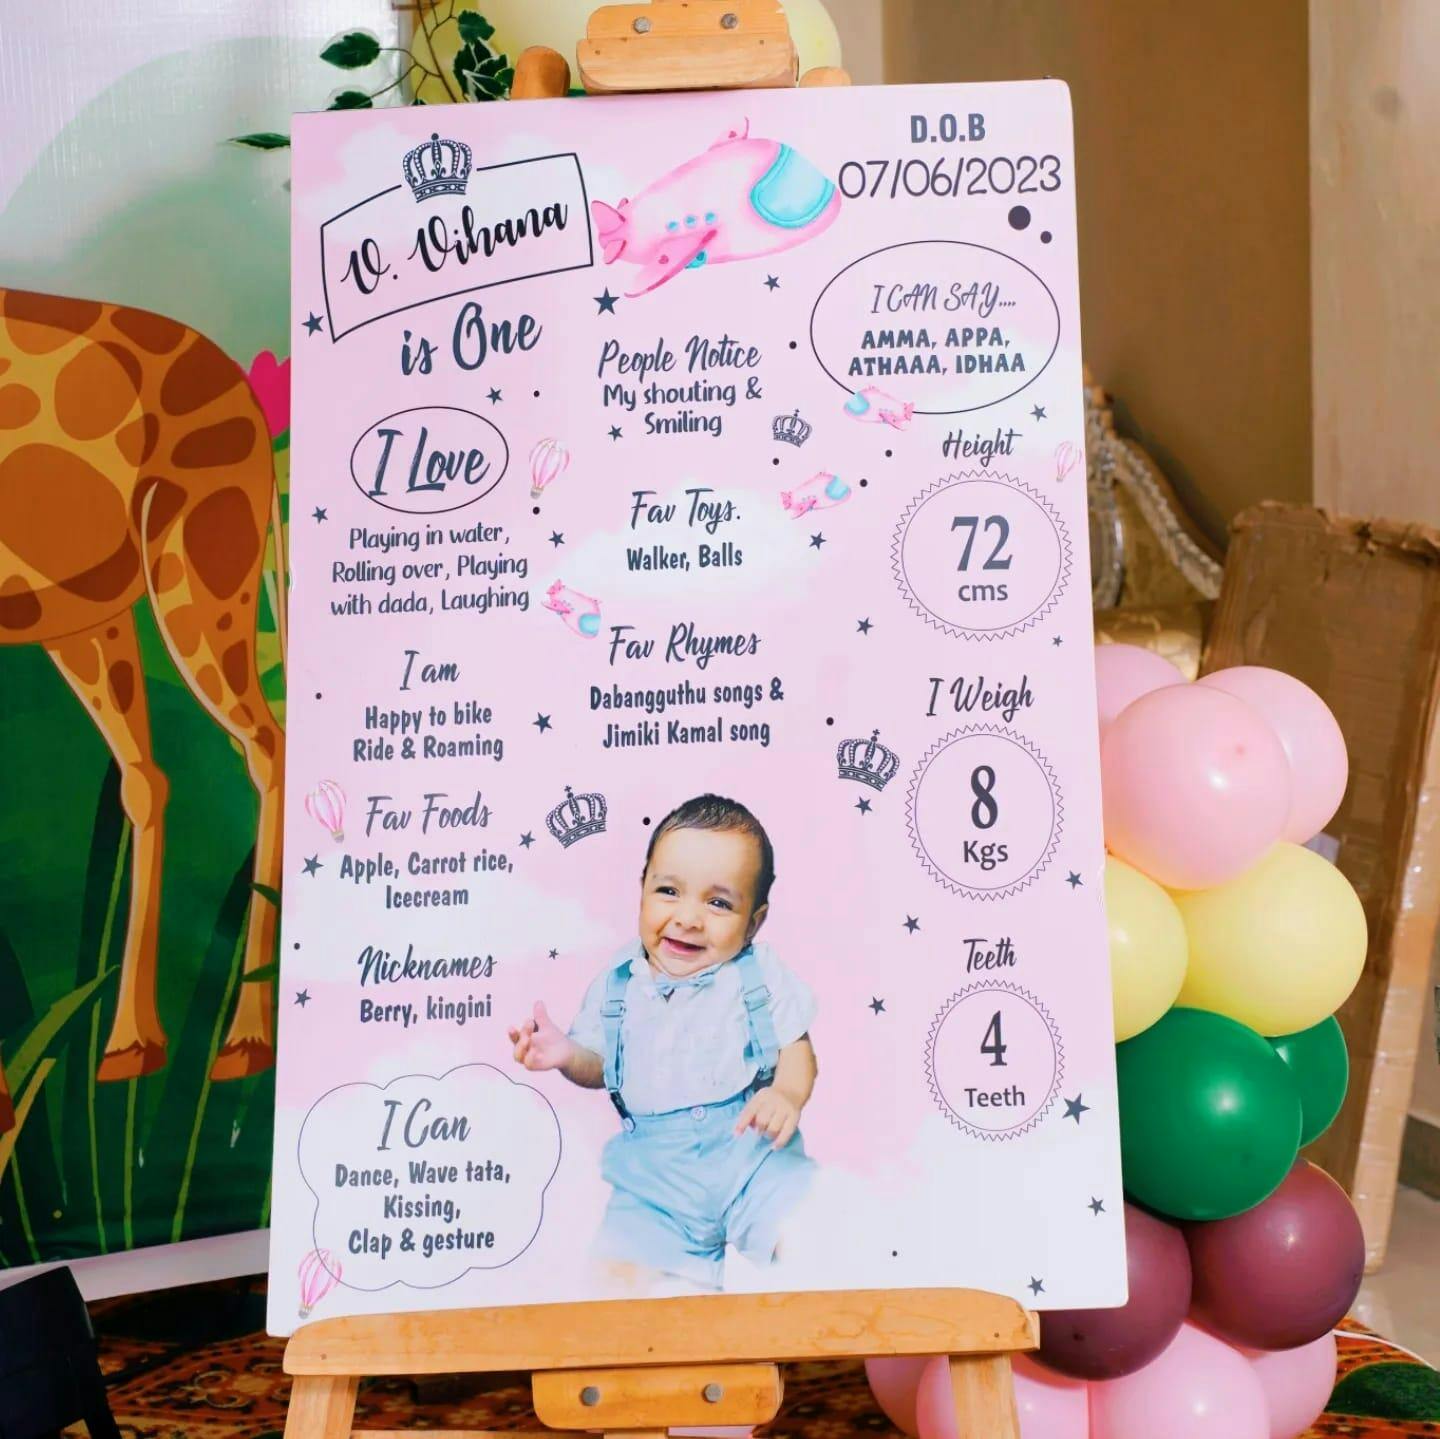 V. Vihana
is One
D.O.B
07/06/2023
I CAN SAY....
AMMA, APPA,
ATHAAA, IDHAA
People Notice
My shouting &
Smiling
I Love
Playing in water,
Rolling over, Playing
with dada, Laughing
Fav Toys.
Walker, Balls
Height
72
cms
I am
Happy to bike
Ride & Roaming
Fav Rhymes
Dabangguthu songs &
Jimiki Kamal song
I Weigh
8
Kgs
Fav Foods
Apple, Carrot rice,
Icecream
Nicknames
Berry, kingini
Teeth
4
Teeth
I Can
Dance, Wave tata,
Kissing,
Clap & gesture